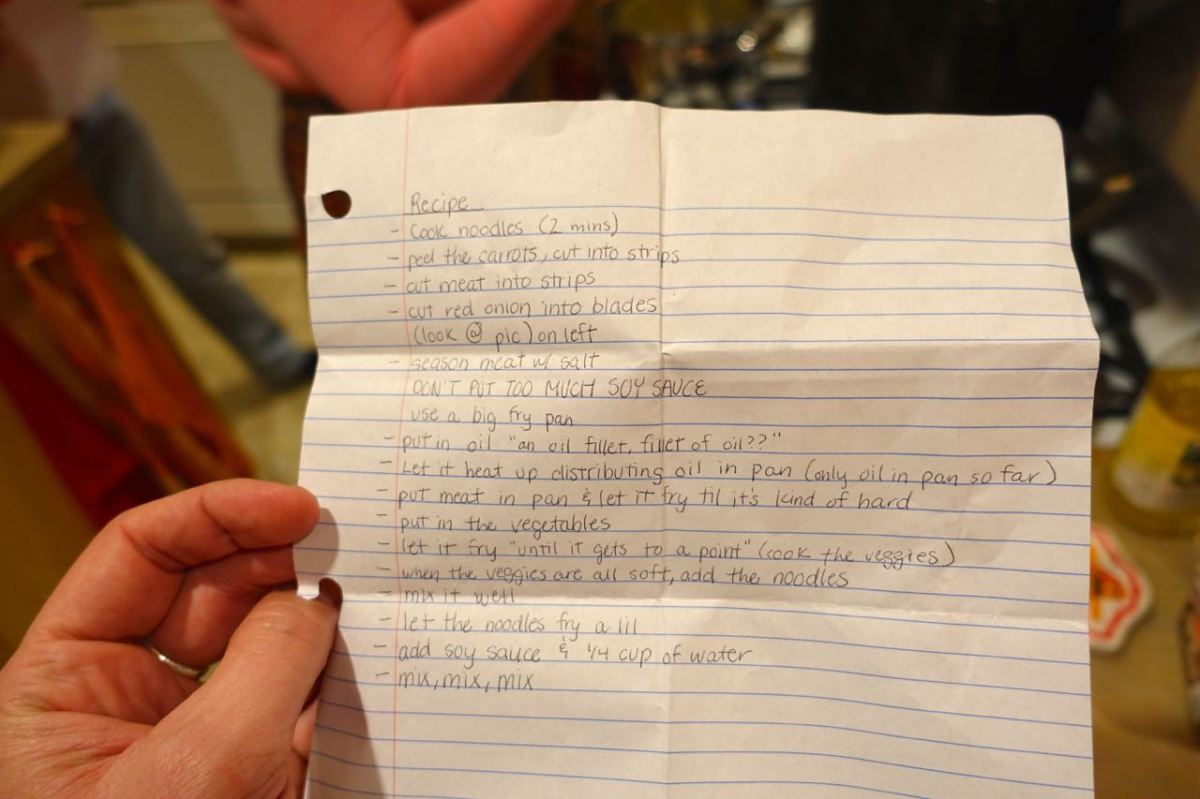 Recipe
- Cook noodles (2 mins)
- peel the carrots, cut into strips
- cut meat into strips
- cut red onion into blades
(look @ pic) on left
- season meat w/ salt
DON'T PUT TOO MUCH SOY SAUCE
use a big fry pan
- put in oil "an oil fillet, fillet of oil??"
- Let it heat up distributing oil in pan (only oil in pan so far)
- put meat in pan & let it fry til it's kind of hard
- put in the vegetables
- let it fry "until it gets to a point" (cook the veggies)
- when the veggies are all soft, add the noodles
- mix it well
- let the noodles fry a lil
- add soy sauce & 1/4 cup of water
- mix, mix, mix